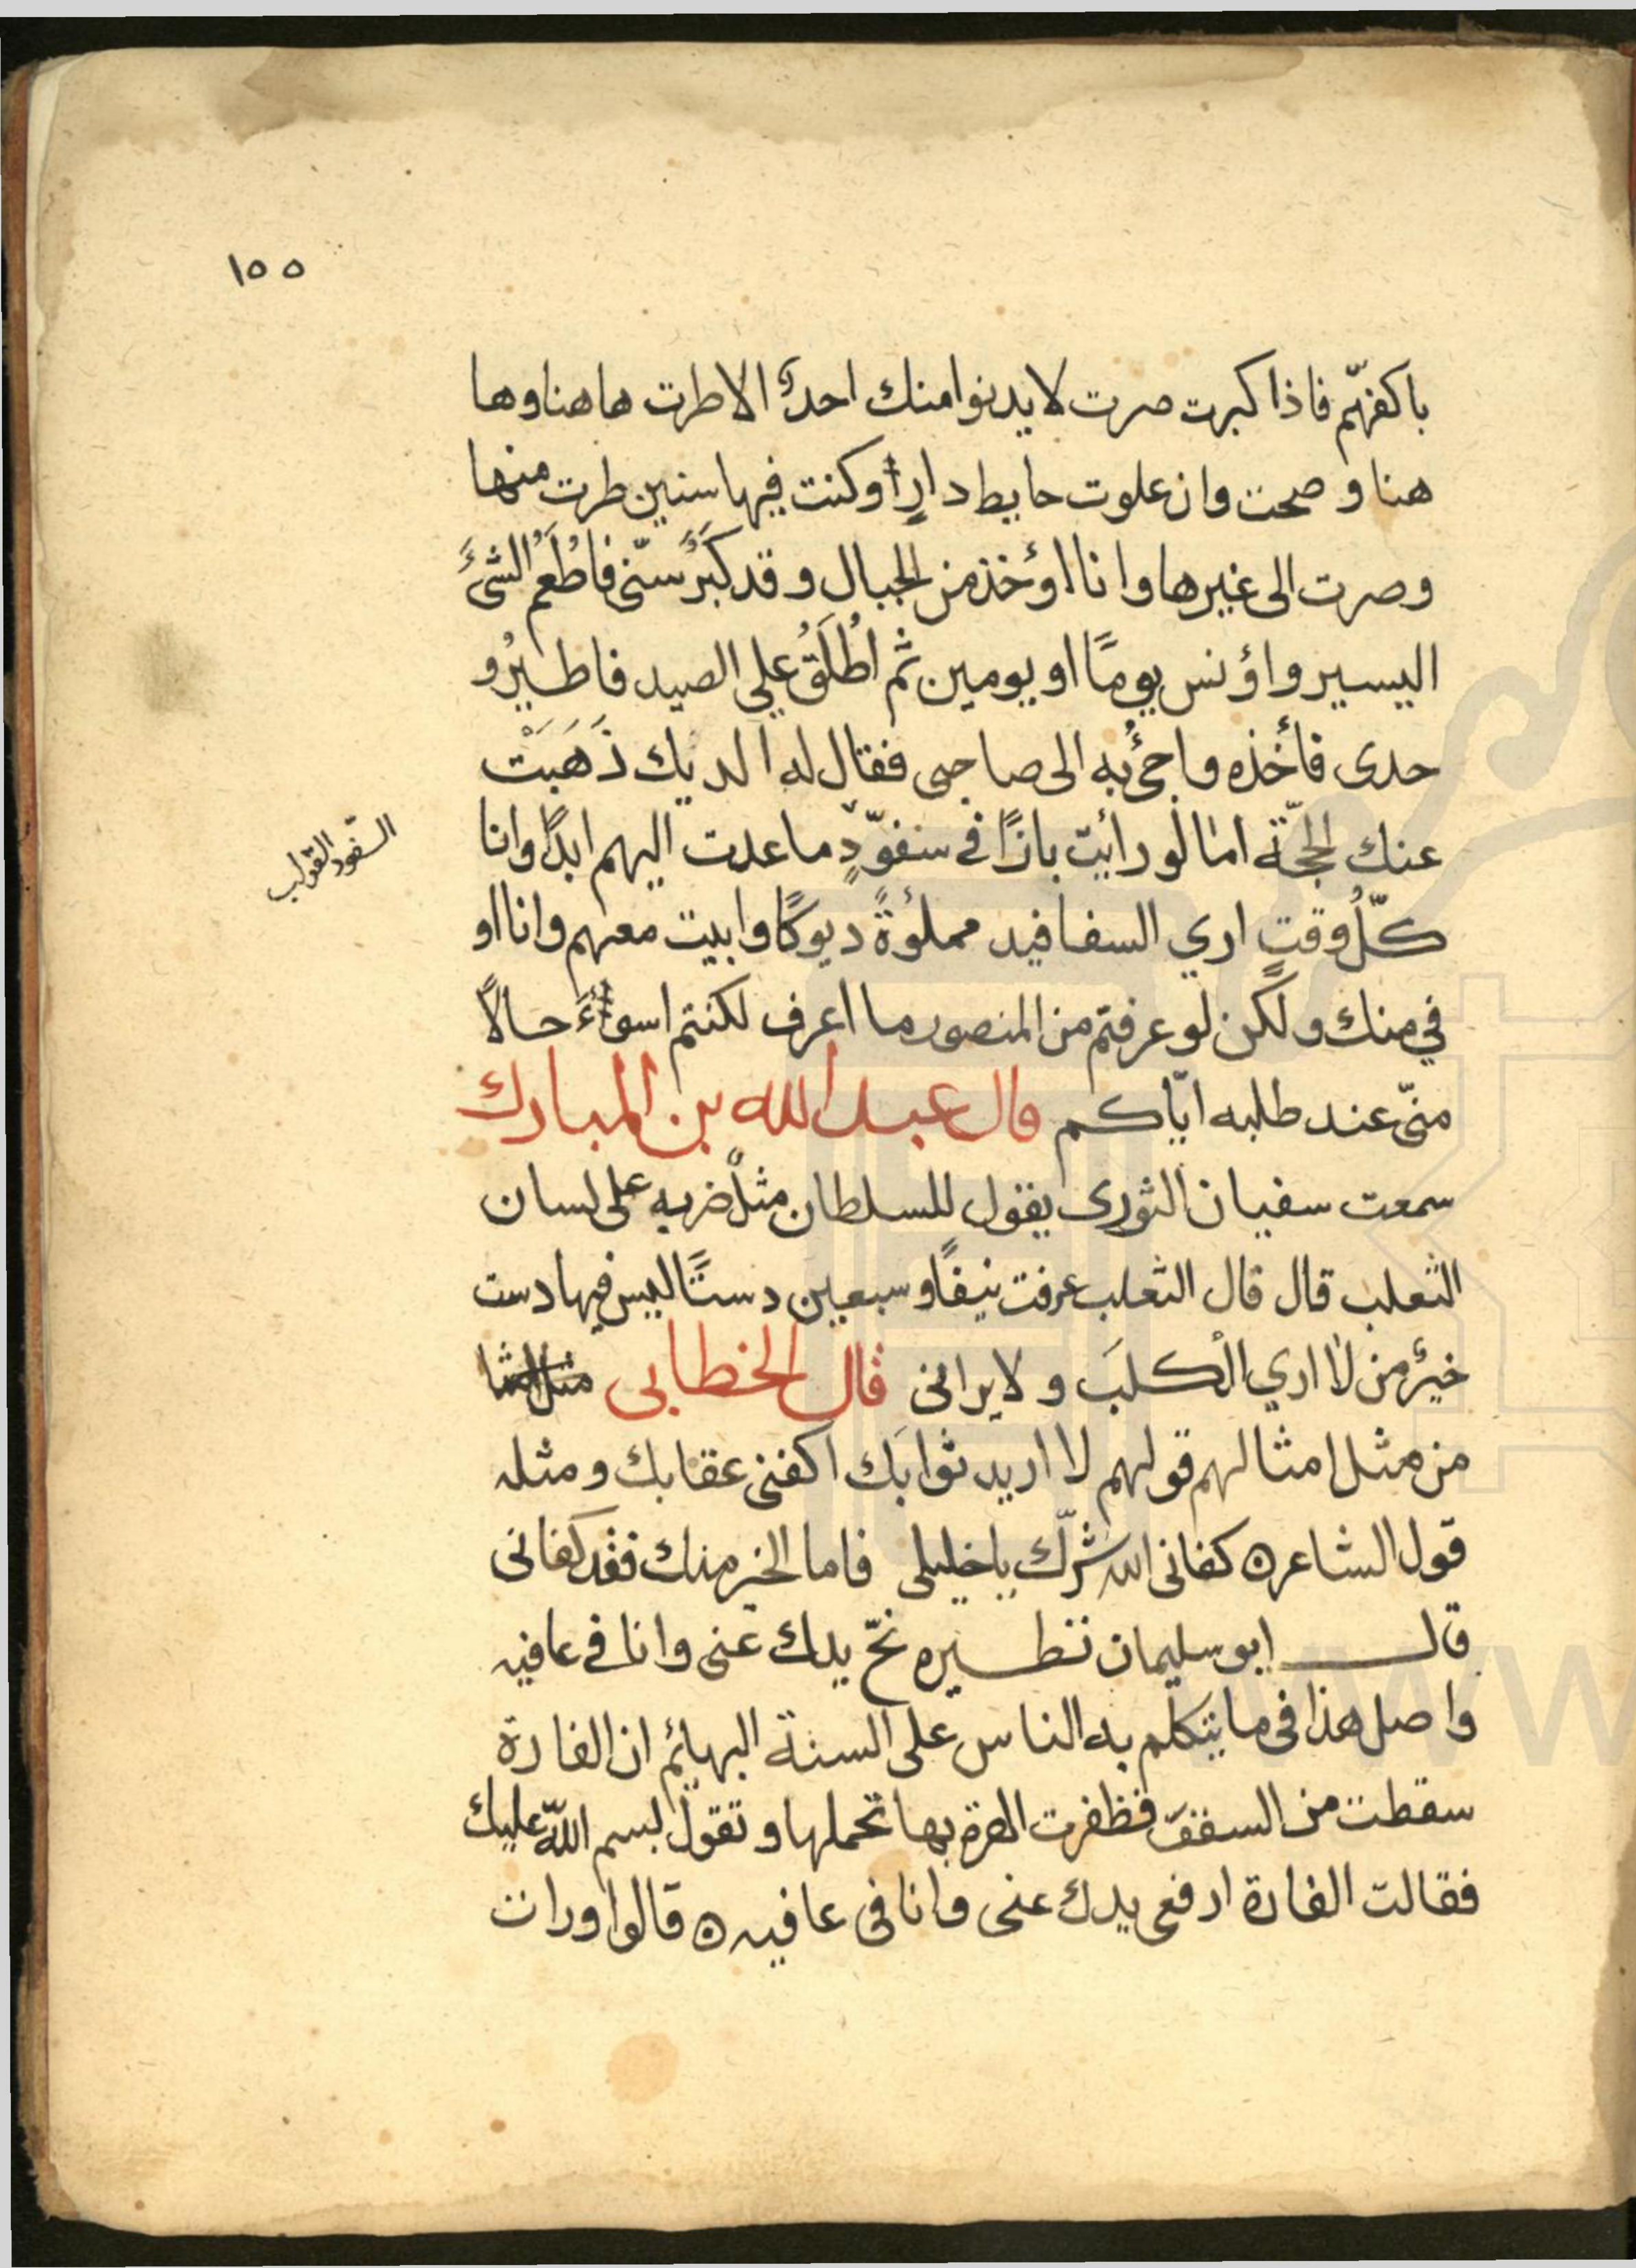 ١٥٥
باكفهّم فاذا كبرت صرت لا يدنوا منك احدٌ الا طرت هاهنا وها
هنا و صحت وان علوت حايط دارٍ أوكنت فيها سنين طرت منها
وصرت الى غيرها وانا اوُخذ من الجبال و قد كَبَرَ سنّى فاُطْعَمُ الشئَ
اليسير واؤنس يومًا او يومين ثم اُطْلَقُ علي الصيد فاطيرُ و
حدى فأخذه واجئُ به الى صاحبى فقال له الديك ذَهَبَتْ
عنك الحجّة اما لو رائيت بازًا في سفّودٍ ما عدت اليهم ابدًا وانا
السفود القولب
كلُّ وقتٍ اري السفافيد مملوُةً ديوكًا وابيت معهم وانا او
في منك ولكن لو عرفتم من المنصور ما اعرف لكنتم اسواءَ حالاً
منّى عند طلبه ايّاكم قال عبد الله بن المبارك
سمعت سفيان الثورى يقول للسلطان مثلٌ ضربه على لسان
الثعلب قال قال الثعلب عرفت نيفًا و سبعين دستًا ليس فيها دست
خيرٌ من لا اري الكلبَ و لا يرانى قال الخطابى
من مثل امثالهم قولهم لا اريد ثوابَك اكفنى عقابك و مثله
قول الشاعر ه كفانى الله شرّك يا خليلى فاما الخير منك فقد كفانى
قال ابو سليمان نظيره نحّ يدك عنى وانا في عافيه
واصل هذا فى ما يتكلم به الناس على السنة البهائم ان الفارة
سقطت من السقف فظفرت الهرة بها تحملها و تقول بسم الله عليك
فقالت الفارة ارفعى يدك عنى وانا فى عافيه ه قالوا ورات